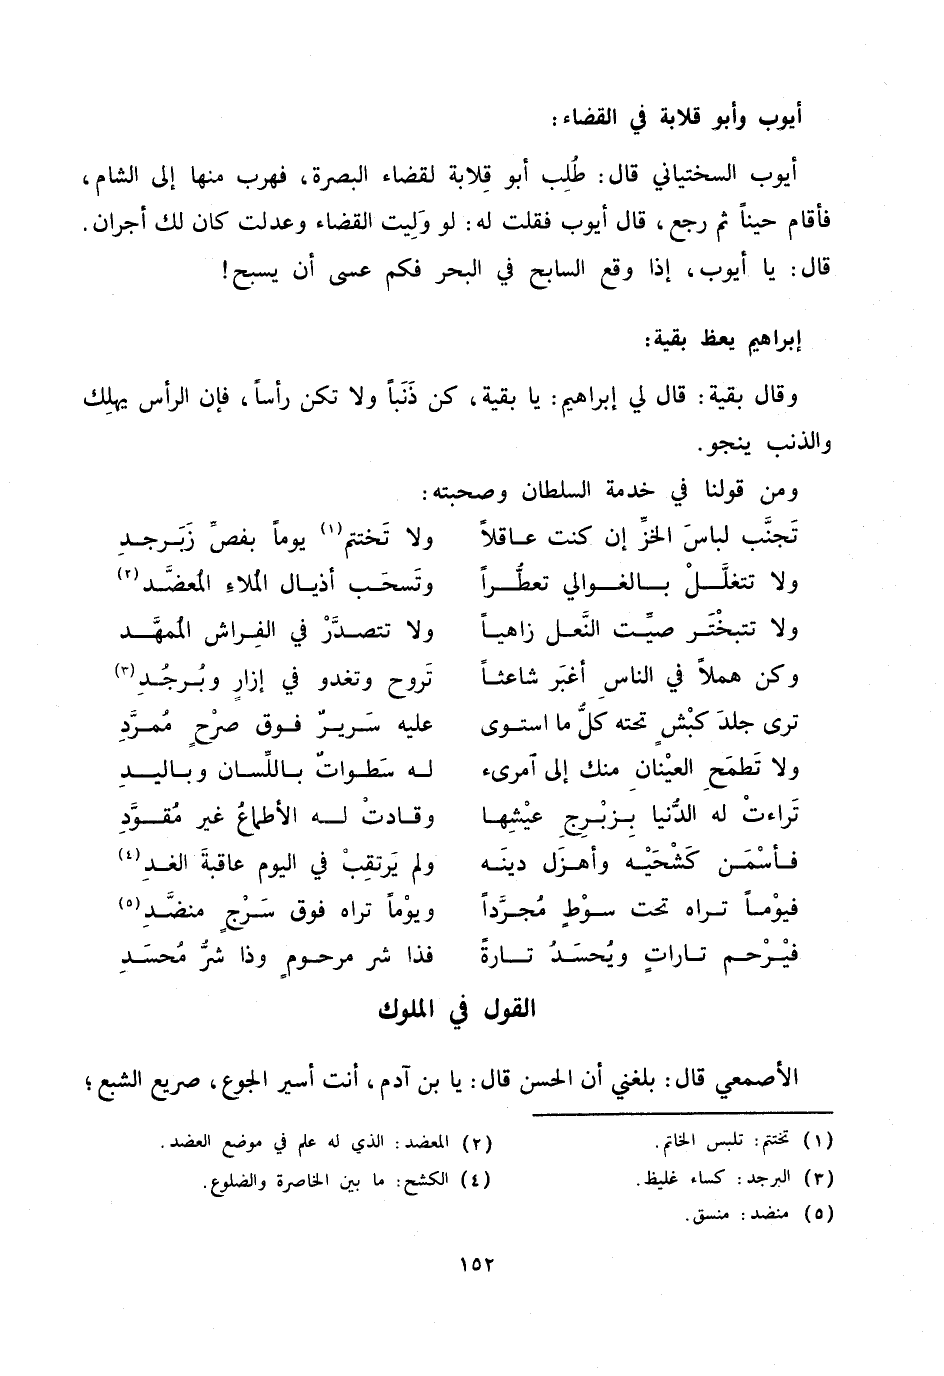 أيوب وأبو قلابة في القضاء:
أيوب السختياني قال: طُلِب أبو قِلابة لقضاء البصرة، فهرب منها إلى الشام،
فأقام حيناً ثم رجع، قال أيوب فقلت له: لو وَلِيت القضاء وعدلت كان لك أجران.
قال: يا أيوب، إذا وقع السابح في البحر فكم عسى أن يسبح!
إبراهيم يعظ بقية:
وقال بقية: قال لي إبراهيم: يا بقية، كن ذَنَباً ولا تكن رأساً، فإن الرأس يهلِك
والذنب ينجو.
ومن قولنا في خدمة السلطان وصحبته:
تَجنَّب لباسَ الخزِّ إن كنت عاقلاً ولا تَختتم(١) يوماً بفصِّ زَبَرجدِ
ولا تتغلَّلْ بالغوالي تعطُّراً وتَسحَب أذيال المُلاء المُعضَّد(٢)
ولا تتبخْتَر صيِّت النَّعل زاهياً ولا تتصدَّرْ في الفِراش المُمهَّد
وكن هملاً في الناسِ أغبَر شاعثاً تَروح وتغدو في إزارٍ وبُرجُدِ(٣)
ترى جلدَ كبْشٍ تحته كلُّ ما استوى عليه سَريرٌ فوق صرْحٍ مُمرَّدِ
ولا تَطمَحِ العيْنان منك إلى آمرىء له سَطواتٌ باللِّسان وباليد
تَراءتْ له الدُّنيا بِزبْرِجِ عيْشِها وقادتْ له الأطماعُ غير مُقوَّدِ
فأسْمَن كَشْحَيْه وأهزَل دينَه ولم يَرتقِبْ في اليوم عاقبةَ الغدِ(٤)
فيوْماً تراه تحت سوْطٍ مُجرَّداً ويوْماً تراه فوق سَرْجٍ منضَّد(٥)
فيُرْحم تاراتٍ ويُحسَدُ تارةً فذا شر مرحومٍ وذا شرُّ مُحسَدِ
القول في الملوك
الأصمعي قال: بلغني أن الحسن قال: يا بن آدم، أنت أسير الجوع، صريع الشبع؛
(١) تختتم: تلبس الخاتم. (٢) المعضد: الذي له علم في موضع العضد.
(٣) البرجد: كساء غليظ. (٤) الكشح: ما بين الخاصرة والضلوع.
(٥) منضد: منسق.
١٥٢